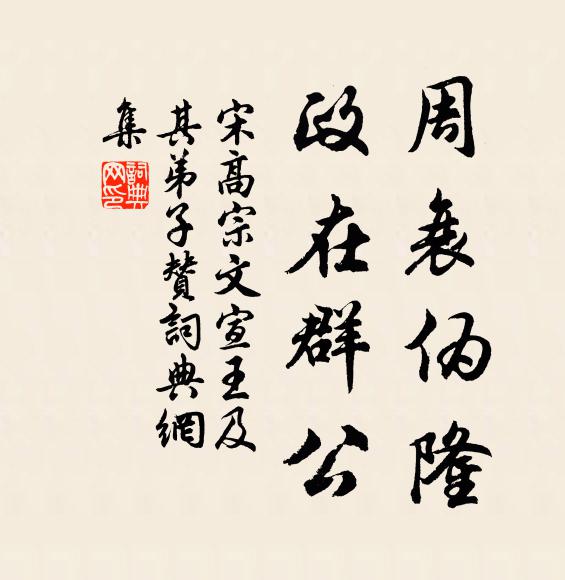 周衰偽隆
政在群公
宋高宗文宣王及
其弟子贊詞典網
集
詞典
网印